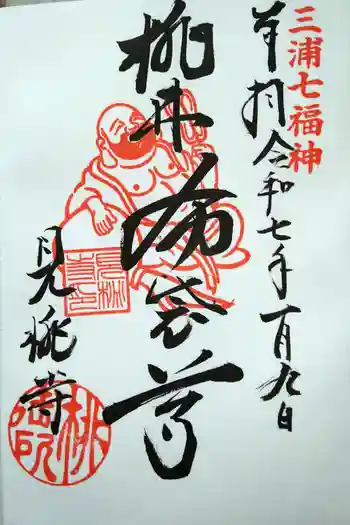 三浦七福神
奉拝 令和七年一月九日
桃林 布袋尊
見桃寺
桃院